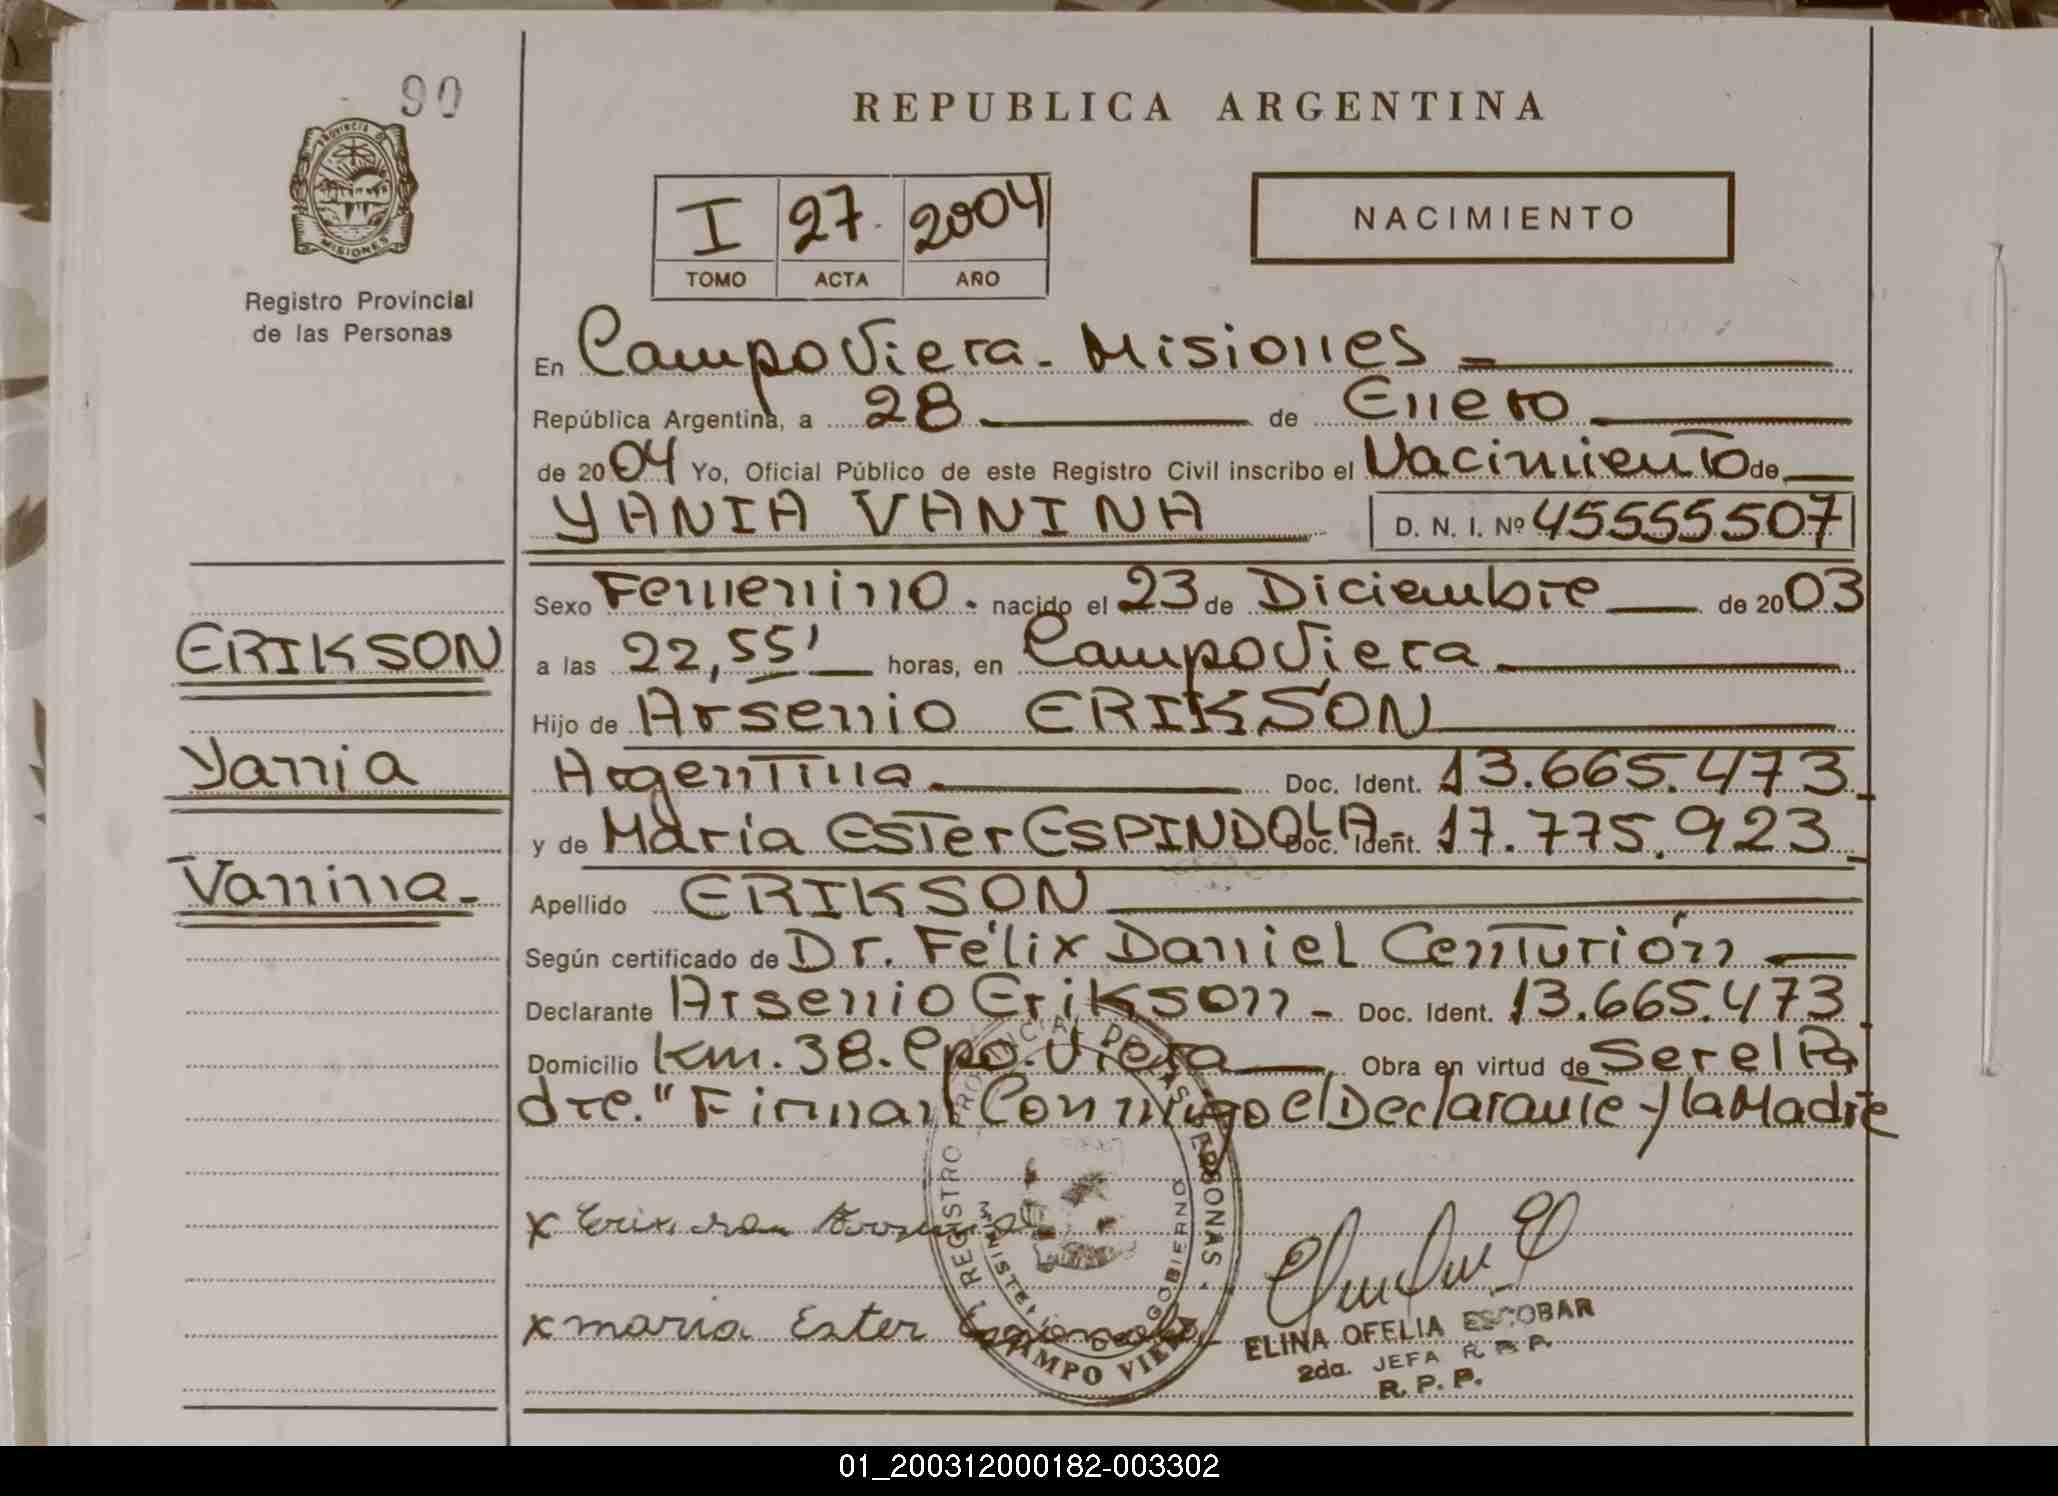 90
PROVINCIA DE
MISIONES
Registro Provincial
de las Personas
REPUBLICA ARGENTINA
I 27. 2004
TOMO ACTA AÑO
NACIMIENTO
En Campo Viera - Misiones
República Argentina, a 28 de Enero
de 2004 Yo, Oficial Público de este Registro Civil inscribo el Nacimiento de
YANIA VANINA D. N. I. Nº 45555507
Sexo Femenino. nacido el 23 de Diciembre de 2003
ERIKSON
a las 22,55' horas, en Campo Viera
Hijo de Arsenio ERIKSON
Yania
Argentina Doc. Ident. 13.665.473
y de María Ester ESPINDOLA - Doc. Ident. 17.775.923
Vanina -
Apellido ERIKSON
Según certificado de Dr. Félix Daniel Centurión
Declarante Arsenio Erikson - Doc. Ident. 13.665.473
Domicilio Km. 38. Cpo. Viera Obra en virtud de Ser el Pa
dre." Firman Conmigo el Declarante y la Madre
REGISTRO PROVINCIAL DE LAS PERSONAS
GOBIERNO
CAMPO VIERA
x maria Ester
ELINA OFELIA ESCOBAR
2da. JEFA
R. P. P.
01_200312000182-003302